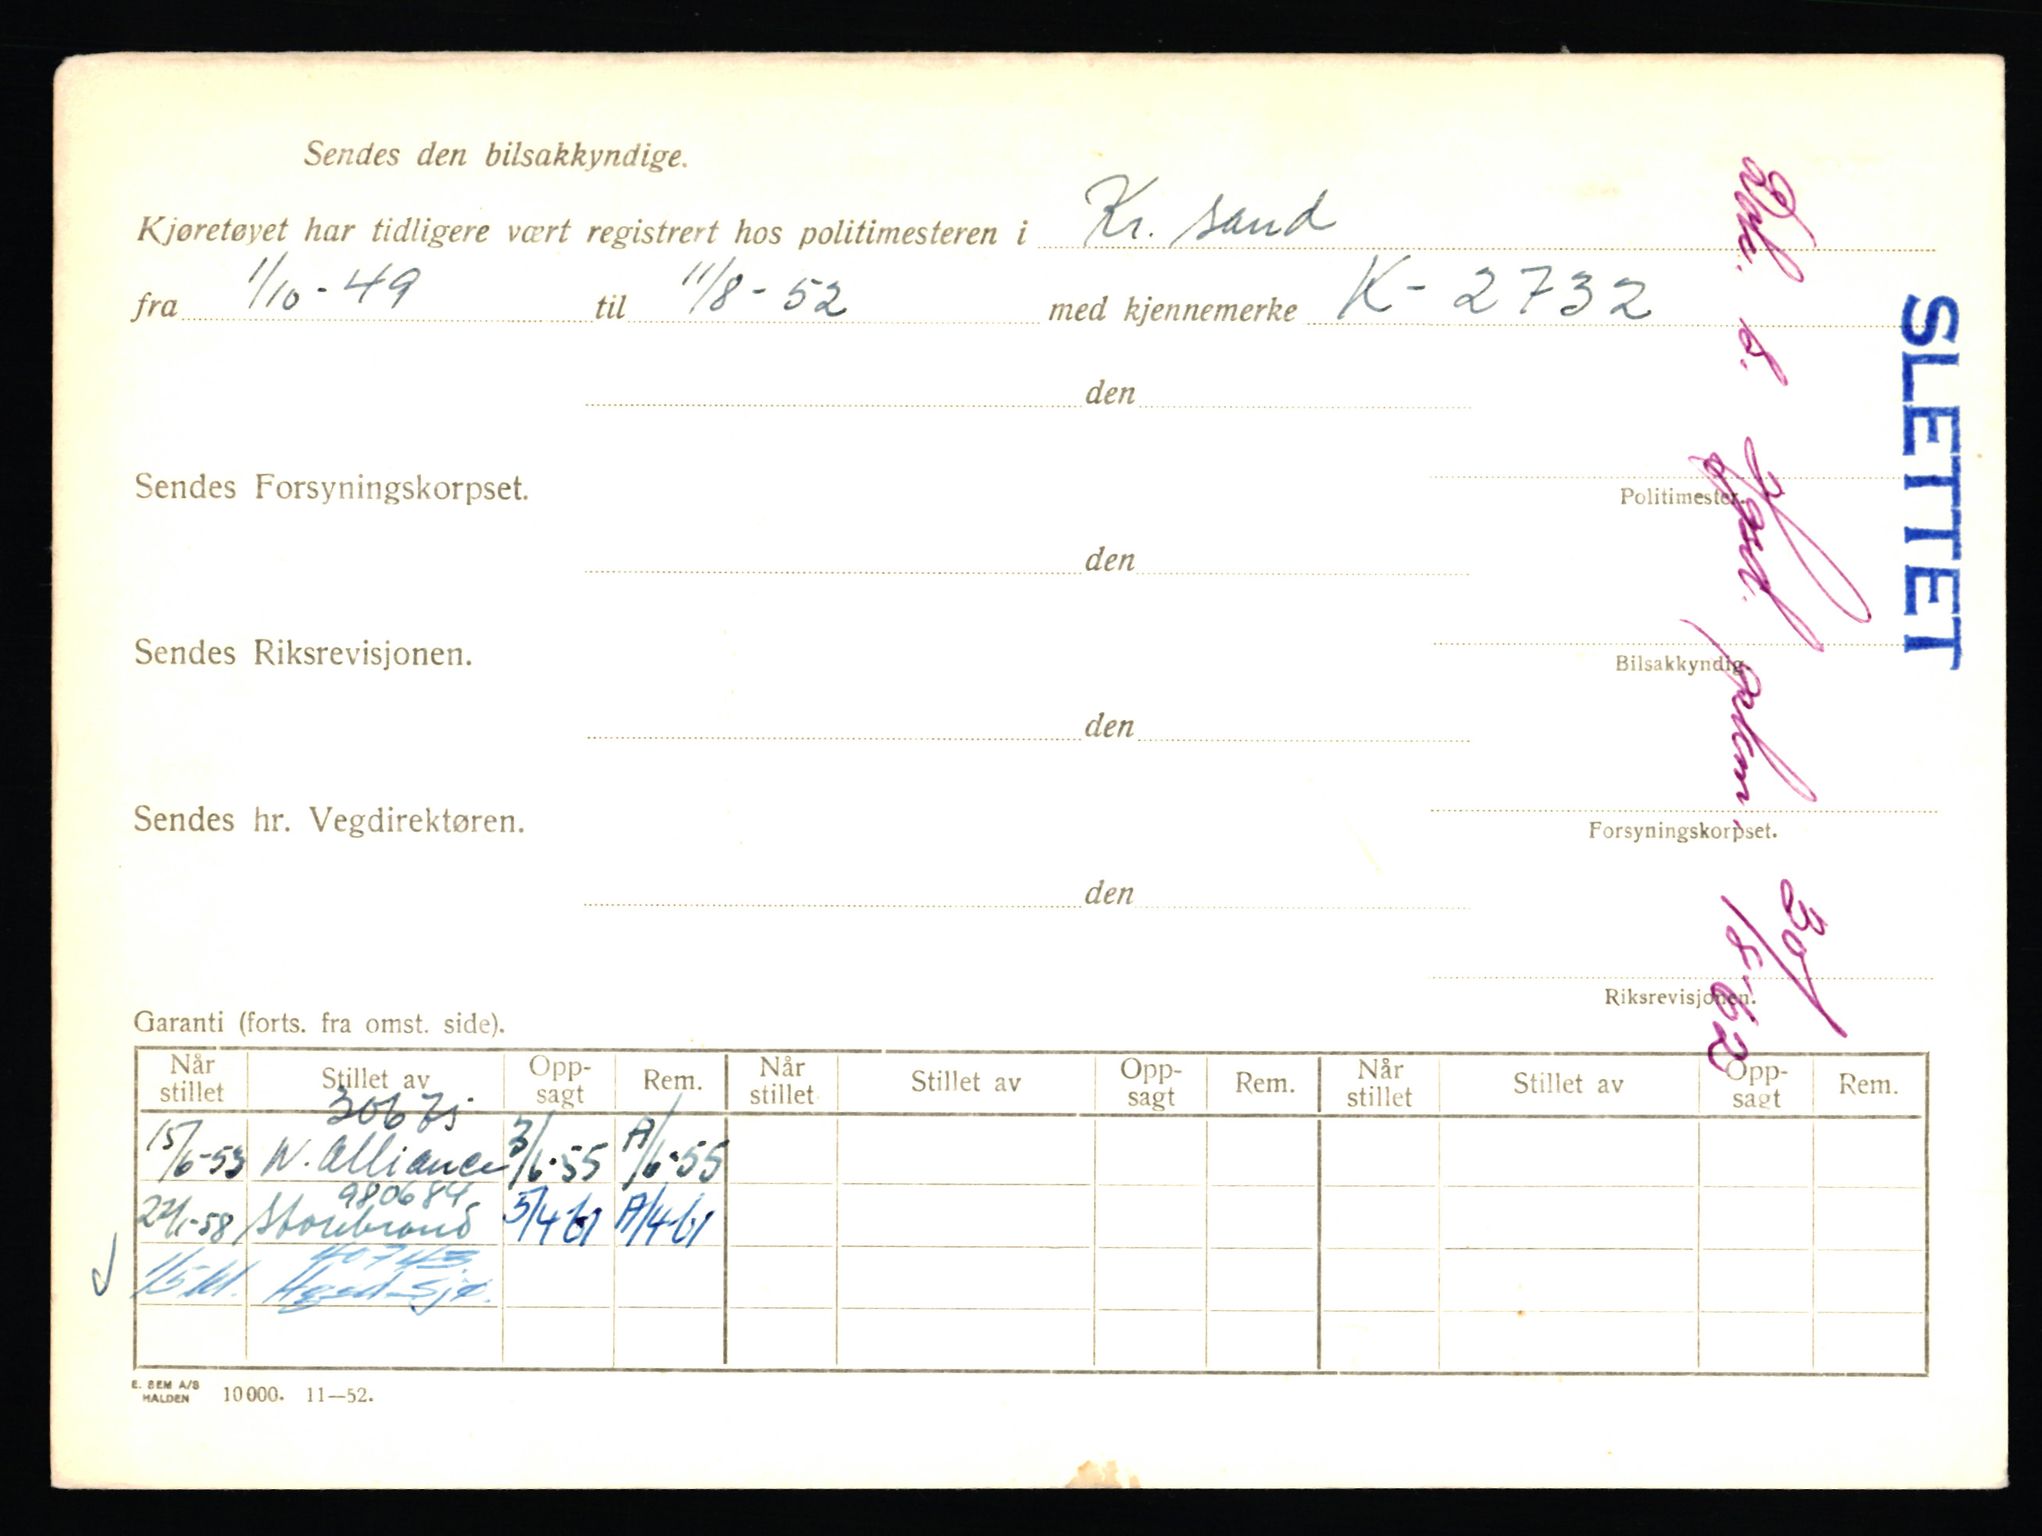 Sendes den bilsakkyndige.
Kjøretøyet har tidligere vært registrert hos politimesteren i Kr. sand
fra 1/10-49 til 11/8-52 med kjennemerke K-2732
den
Sendes Forsyningskorpset.
Politimester.
den
Sendes Riksrevisjonen.
Bilsakkyndig.
den
Sendes hr. Vegdirektøren.
Forsyningskorpset.
den
Riksrevisjonen.
SLETTET
30/8-62
Garanti (forts. fra omst. side).
Når stillet Stillet av Opp-sagt Rem. Når stillet Stillet av Opp-sagt Rem. Når stillet Stillet av Opp-sagt Rem.
15/6-53 N. Alliance 3/6-55 A/6-55
980684
22/1-58 Storebrand 5/4-61 A/4-61
40743
E. SEM A/S
HALDEN 10000. 11—52.